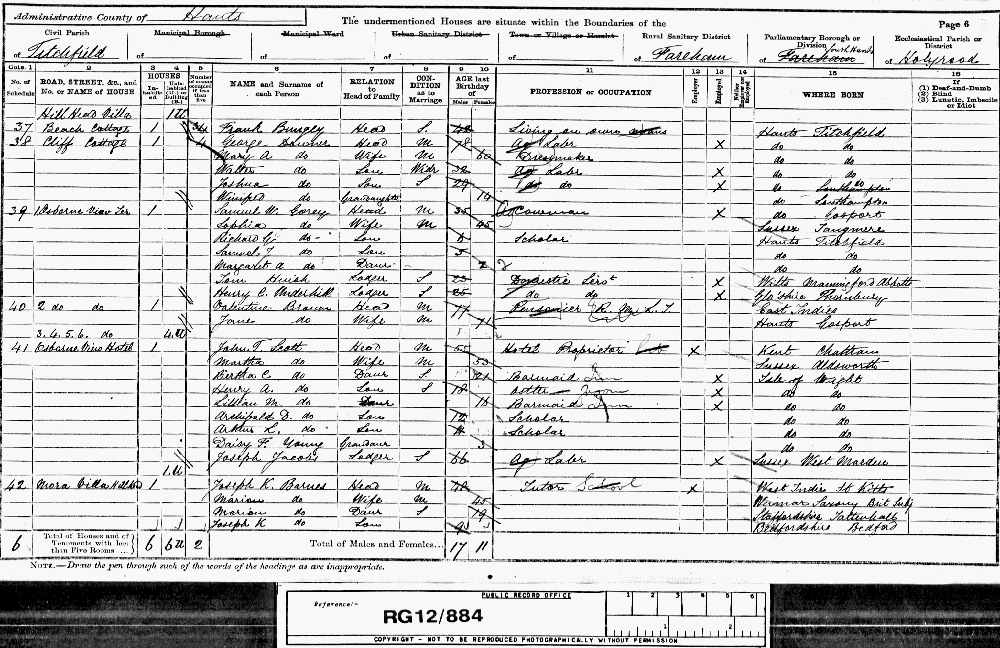 Administrative County of Hants
The undermentioned Houses are situate within the Boundaries of the
Page 6
Civil Parish of Titchfield
Municipal Borough of
Municipal Ward of
Urban Sanitary District of
Town or Village or Hamlet of
Rural Sanitary District of Fareham
Parliamentary Borough or Division of Fareham South Hants
Ecclesiastical Parish or District of Holyrood
Cols. 1 2 3 4 5 6 7 8 9 10 11 12 13 14 15 16
No. of Schedule
ROAD, STREET, &c., and No. or NAME of HOUSE
HOUSES
Inhabited
Uninhabited (U.) or Building (B.)
Number of rooms occupied if less than five
NAME and Surname of each Person
RELATION to Head of Family
CONDITION as to Marriage
AGE last Birthday of
Males Females
PROFESSION or OCCUPATION
Employer
Employed
Neither Employer nor Employed
WHERE BORN
If (1) Deaf-and-Dumb (2) Blind (3) Lunatic, Imbecile or Idiot
Hill Head Villa 1 U
37 Beach Cottage 1 Frank Head S. Living on own means Hants Titchfield
38 Cliff Cottage 1 4 George Head M 78 Ag Labr X do do
Mary A. do Wife M 60 Dressmaker do do
Walter do Son Widr 32 Ag Labr X do do
Joshua do Son S 29 do do X do Southampton
Winifred do Grandaughter 14 do Southampton
39 1 Osborne View Ter 1 Samuel W. Gorey Head M 35 Cowman X do Gosport
Sophia do Wife M 45 Sussex Tangmere
Richard G. do Son Scholar Hants Titchfield
Samuel J. do Son 5 do do
Margaret A do Daur 2 do do
Tom Huish Lodger S 23 Domestic Servt X Wilts Manningford Abbotts
Henry C. Underhill Lodger S 25 do do X Glo'shire Thornbury
40 2 do do 1 Valentine Brown Head M 77 Pensioner R. M. L. I. East Indies
Jane do Wife M 71 Hants Gosport
3. 4. 5. 6. do 4 U
41 Osborne View Hotel 1 John T. Scott Head M 55 Hotel Proprietor X Kent Chatham
Martha do Wife M 53 Sussex Aldsworth
Bertha C. do Daur S 21 Barmaid Inn X Isle of Wight
Henry A. do Son S 18 X do do
Lillian M. do Daur 16 Barmaid Inn X do do
Archibald D. do Son 12 Scholar do do
Arthur L. do Son 11 Scholar do do
Daisy F. Young Grandaur 3 do do
Joseph Jacobs Lodger S 66 Ag Labr X Sussex West Marden
1 U
42 Mora Villa Hillhead 1 Joseph K. Barnes Head M 48 Tutor School X West Indies St Kitts
Marion do Wife M 45 Weimar Saxony Brit Subj
Marion do Daur S 19 Staffordshire Tattenhall
Joseph K do Son Bedfordshire Bedford
6 Total of Houses and of Tenements with less than Five Rooms ... 6 6 U 2 Total of Males and Females... 17 11
NOTE.—Draw the pen through such of the words of the headings as are inappropriate.
PUBLIC RECORD OFFICE
Reference:-
RG12/884
1 2 3 4 5 6
1 2
COPYRIGHT - NOT TO BE REPRODUCED PHOTOGRAPHICALLY WITHOUT PERMISSION